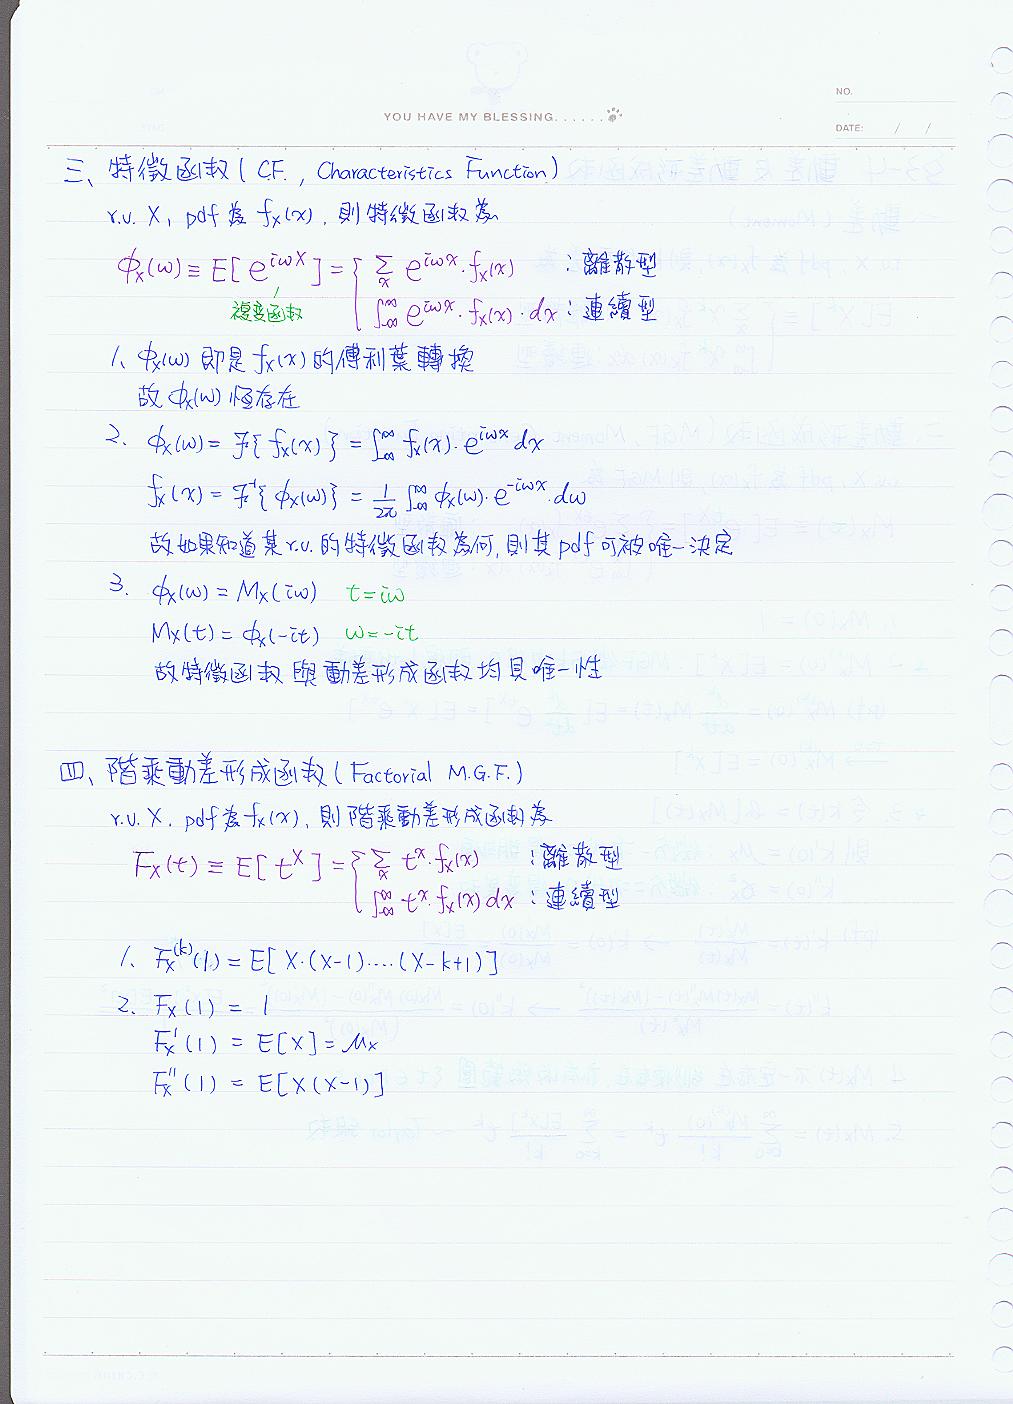 NO.
YOU HAVE MY BLESSING......
DATE: / /
三、特徵函數(C.F., Characteristics Function)
r.v. X, pdf 為 fx(x), 則特徵函數為
ϕx(ω) ≡ E[e^{iωX}] = { Σ_x e^{iωx}·fx(x) :離散型
∫_{-∞}^{∞} e^{iωx}·fx(x)·dx :連續型
複變函數
1、ϕx(ω) 即是 fx(x) 的傅利葉轉換
故 ϕx(ω) 恆存在
2. ϕx(ω) = F{fx(x)} = ∫_{-∞}^{∞} fx(x)·e^{iωx} dx
fx(x) = F^{-1}{ϕx(ω)} = 1/2π ∫_{-∞}^{∞} ϕx(ω)·e^{-iωx}·dω
故如果知道某 r.v. 的特徵函數為何, 則其 pdf 可被唯一決定
3. ϕx(ω) = Mx(iω) t=iω
Mx(t) = ϕx(-it) ω=-it
故特徵函數與動差形成函數均具唯一性
四、階乘動差形成函數(Factorial M.G.F.)
r.v. X, pdf 為 fx(x), 則階乘動差形成函數為
Fx(t) ≡ E[t^X] = { Σ_x t^x·fx(x) :離散型
∫_{-∞}^{∞} t^x·fx(x) dx :連續型
1、Fx^{(k)}(1) = E[X·(X-1)····(X-k+1)]
2. Fx(1) = 1
Fx'(1) = E[X] = μx
Fx''(1) = E[X(X-1)]